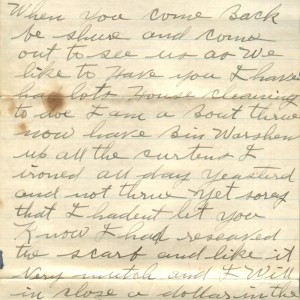 When you come Back
be shure and come
out to see us as we
like to have you I have
had lots House cleaning
to do I am a Bout threw
now have Bin Warshen
up all the curtens I
ironed all day yeasterd
and not threw yet sorey
that I hadent let you
Know I had reseaved
the scarf and like it
very mutch and I will
in close a dollar in the